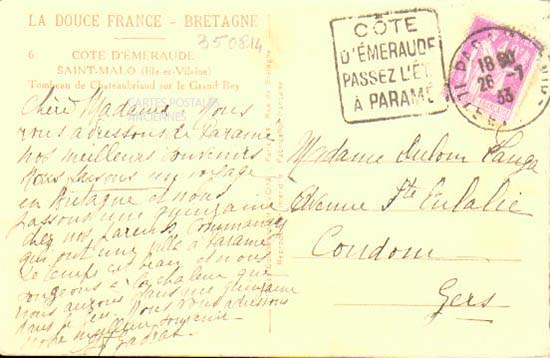 LA DOUCE FRANCE - BRETAGNE
350814
6 COTE D'ÉMERAUDE
SAINT-MALO (Ille-et-Vilaine)
Tombeau de Chateaubriand sur le Grand Bey
CARTES POSTALES
ANCIENNES
Chère Madame Nous
vous adressons de Paramé
nos meilleurs souvenirs
Nous faisons un voyage
en Bretagne et nous
passons une quinzaine
chez nos parents
qui ont une villa à Paramé
Le temps est beau et nous
songeons à la chaleur que
nous aurons dans une quinzaine
dans le Gers. Nous vous adressons
notre meilleur souvenir
CÔTE
D'ÉMERAUDE
PASSEZ L'ÉTÉ
À PARAMÉ
18
26 -7
33
Madame
Avenue Ste Eulalie
Condom
Gers